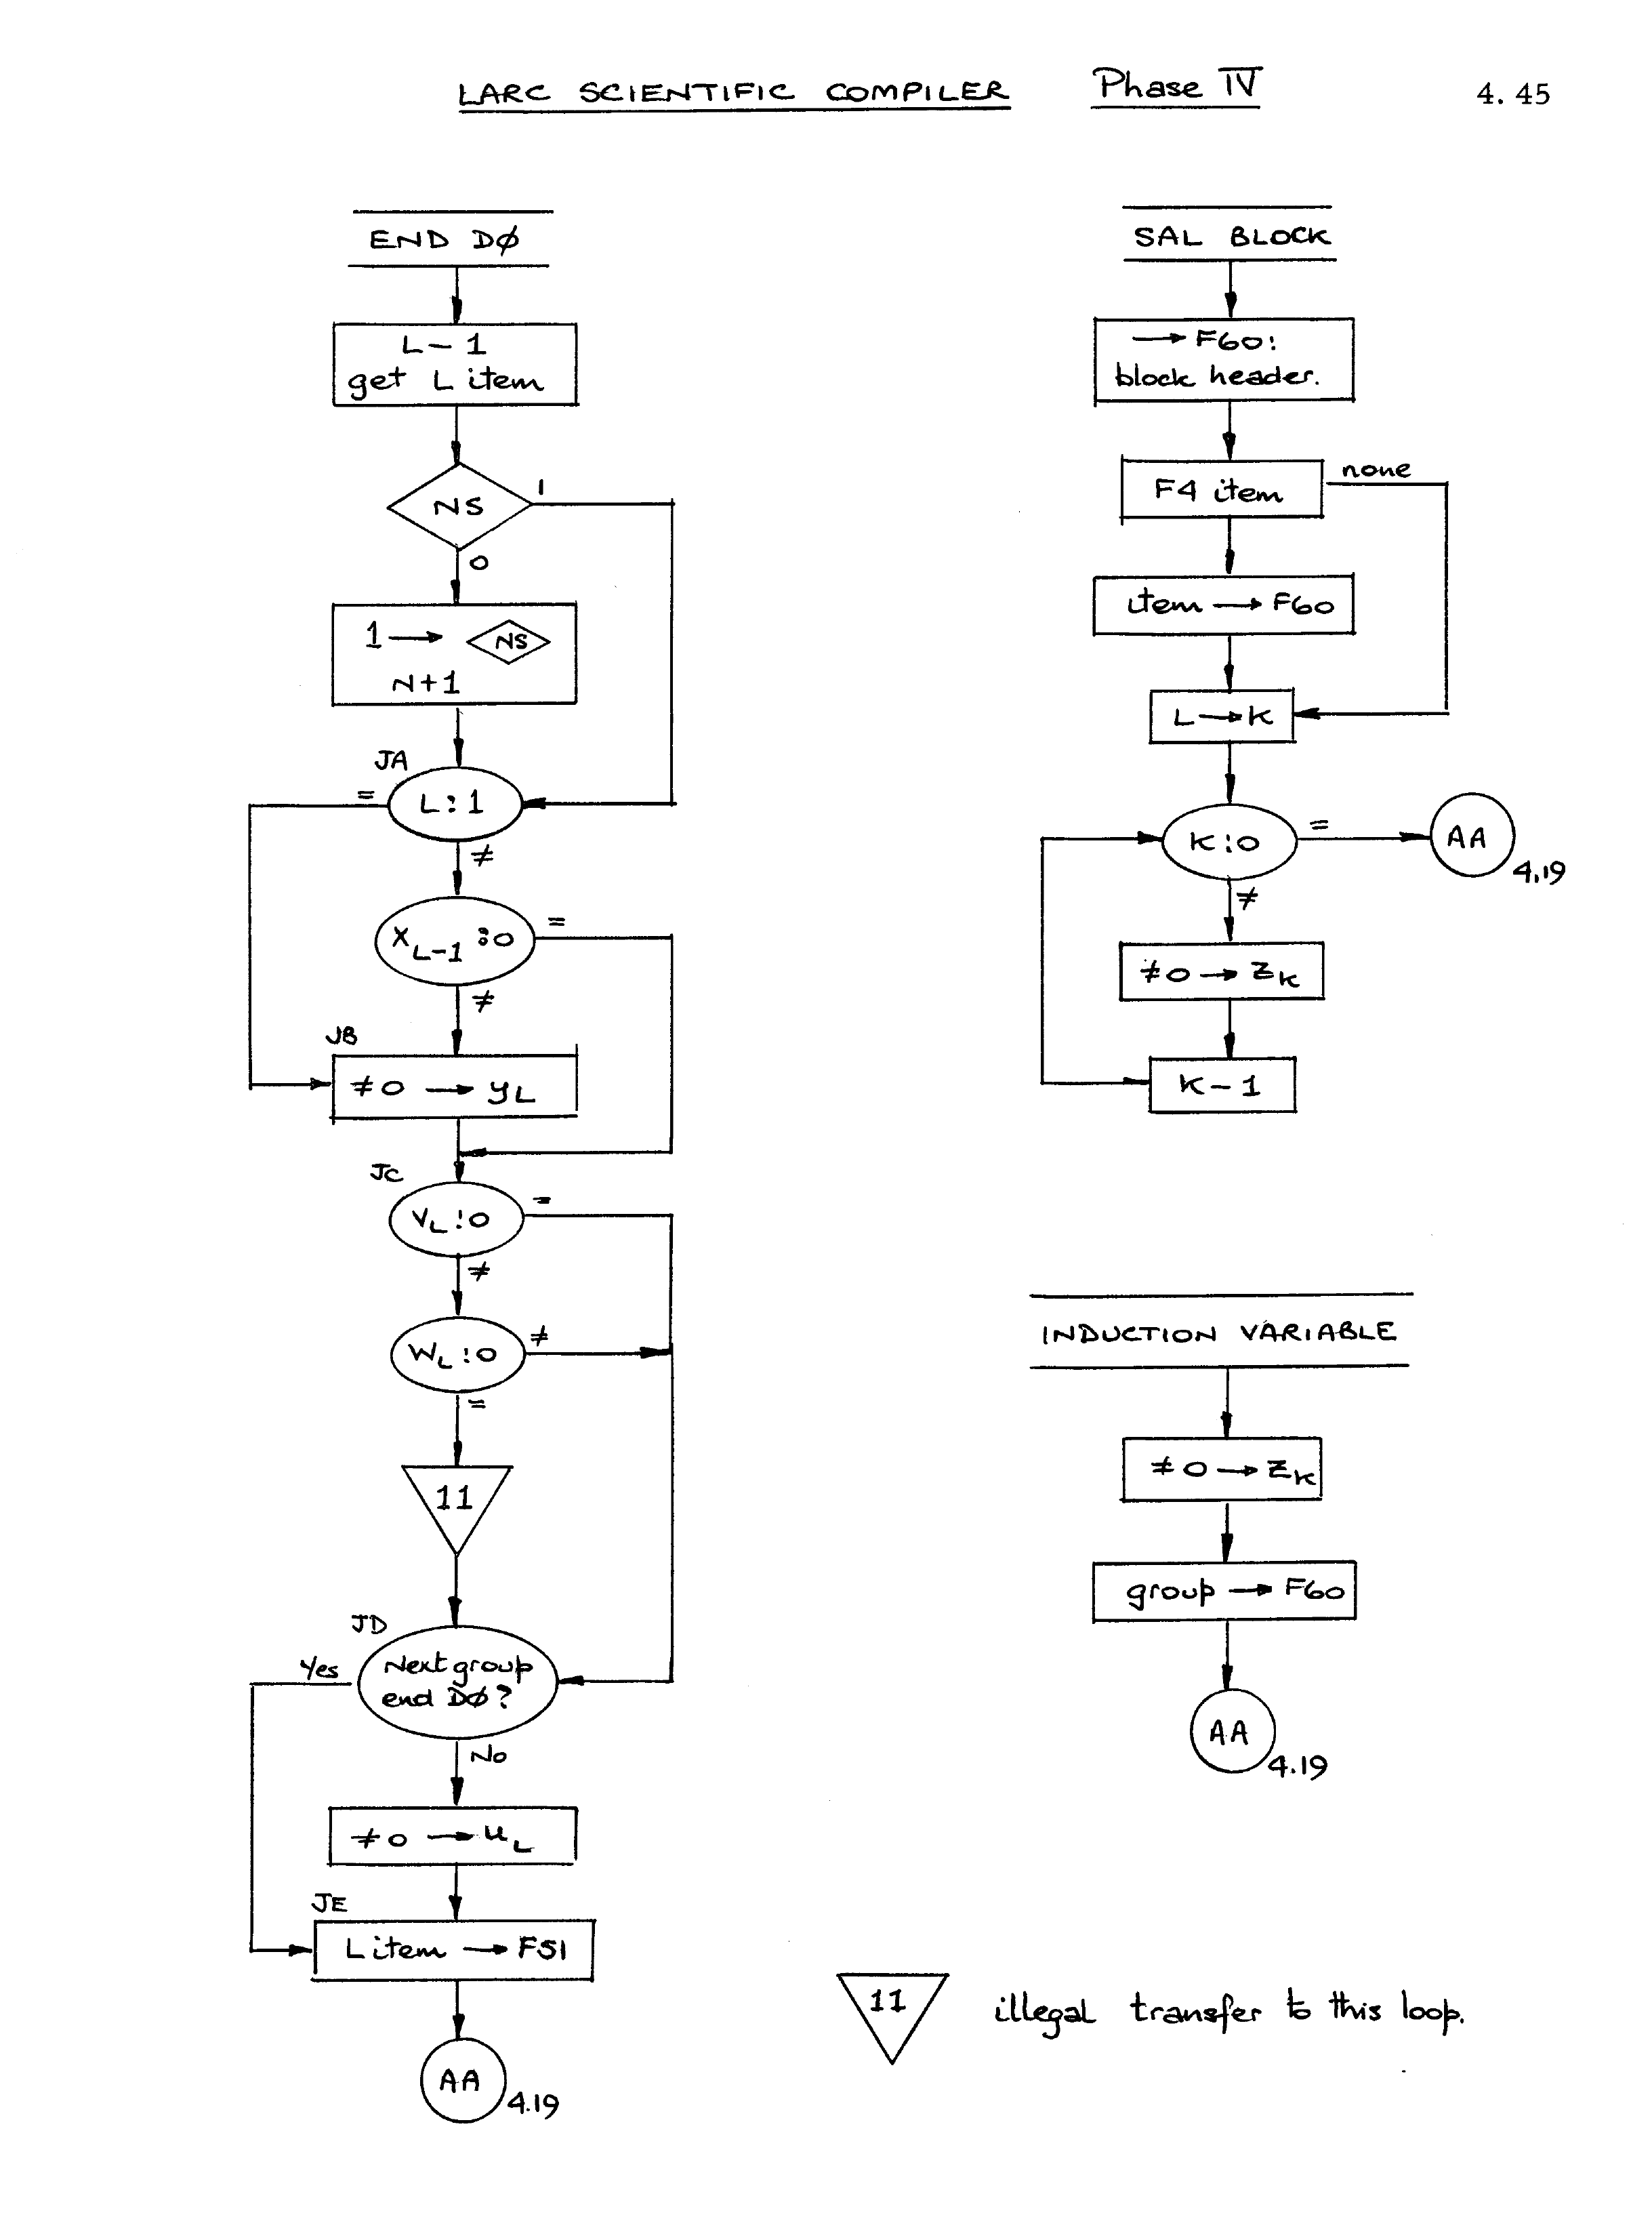 LARC SCIENTIFIC COMPILER Phase IV 4.45
END DØ
L-1
get L item
NS
1
0
1 → NS
N+1
JA
L:1
=
≠
X L-1 :0
=
≠
JB
≠0 → yL
JC
VL:0
=
≠
WL:0
≠
=
11
JD
Next group
end DØ?
Yes
No
≠0 → uL
JE
L item → F51
AA
4.19
SAL BLOCK
→ F60:
block header.
F4 item
none
item → F60
L → K
K:0
=
AA
4.19
≠
≠0 → ZK
K-1
INDUCTION VARIABLE
≠0 → ZK
group → F60
AA
4.19
11
illegal transfer to this loop.